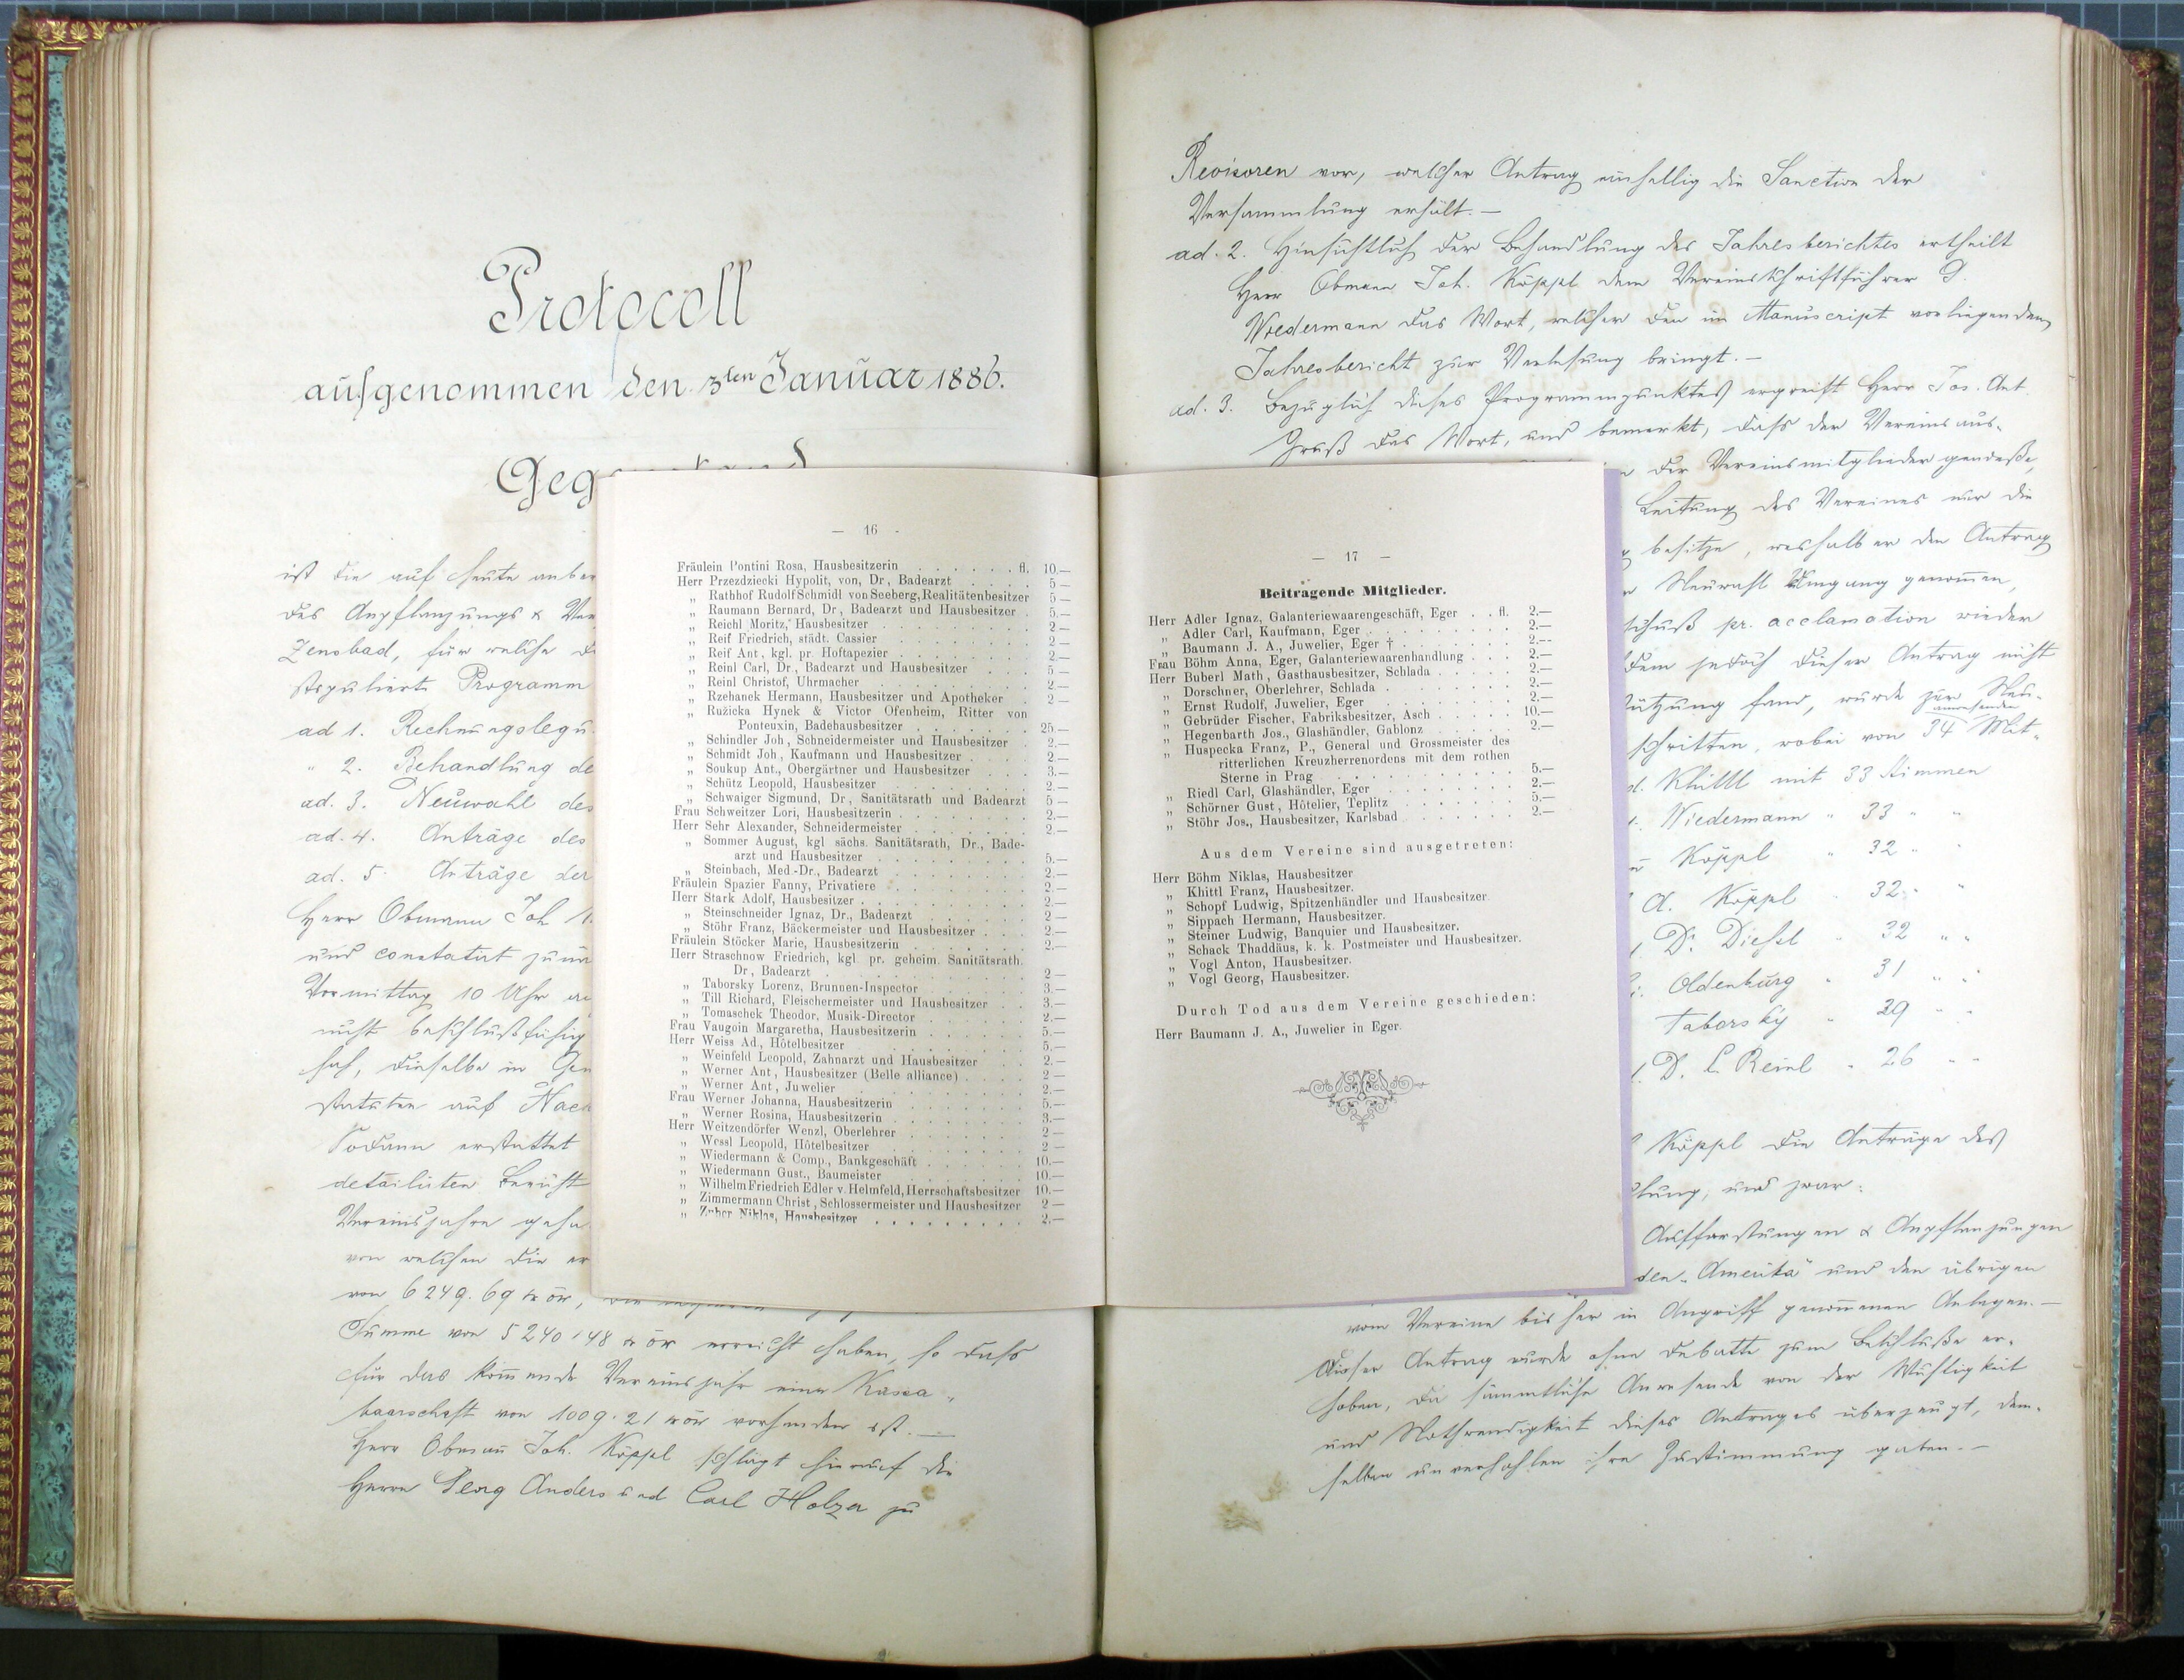 Protocoll
aufgenommen den 3ten Januar 1886.
Geg
ist die auf heute anber
des Anpflanzungs & Ver
für welche d
Programm
ad 1. Rechnungslegu
" 2. Behandlung de
ad. 3. Neuwahl des
ad. 4. Anträge des
ad. 5. Anträge der
Herr Obmann Joh
und constatirt
Vormittag 10 Uhr
nicht beschlußfähig
dieselbe in Gem
Statuten auf Nach
Sodann erstattet
Bericht
Vereinsjahre
von welchen die er
von 6249.69
Summe von 5240.48 erreicht haben, so dass
für das kommende Vereinsjahr eine Kassa
baarschaft von 1009.21 vorhanden ist. —
Herr Obmann Joh. Köppl schlägt hierauf die
Herrn Georg Anders und Carl Holzer zu
— 16 -
Fräulein Pontini Rosa, Hausbesitzerin . . . . . . fl. 10.—
Herr Przezdziecki Hypolit, von, Dr, Badearzt . . . . 5 —
„ Rathhof Rudolf Schmidl von Seeberg, Realitätenbesitzer 5 —
„ Raumann Bernard, Dr, Badearzt und Hausbesitzer . 5.—
„ Reichl Moritz, Hausbesitzer . . . . . . . . . 2.—
„ Reif Friedrich, städt. Cassier . . . . . . . . 2 —
„ Reif Ant, kgl. pr. Hoftapezier . . . . . . . . 2.—
„ Reinl Carl, Dr., Badearzt und Hausbesitzer . . . 5 —
„ Reinl Christof, Uhrmacher . . . . . . . . . 2.—
„ Rzehanek Hermann, Hausbesitzer und Apotheker . . 2 —
„ Ružicka Hynek & Victor Ofenheim, Ritter von
Ponteuxin, Badehausbesitzer . . . . . . . 25 —
„ Schindler Joh, Schneidermeister und Hausbesitzer . 2.—
„ Schmidt Joh, Kaufmann und Hausbesitzer . . . . 2.—
„ Soukup Ant., Obergärtner und Hausbesitzer . . . 3.—
„ Schütz Leopold, Hausbesitzer . . . . . . . . 2.—
„ Schwaiger Sigmund, Dr, Sanitätsrath und Badearzt 5 —
Frau Schweitzer Lori, Hausbesitzerin . . . . . . . 2.—
Herr Sehr Alexander, Schneidermeister . . . . . . . 2.—
„ Sommer August, kgl sächs. Sanitätsrath, Dr., Bade-
arzt und Hausbesitzer . . . . . . . . . 5.—
„ Steinbach, Med.-Dr., Badearzt . . . . . . . . 2.—
Fräulein Spazier Fanny, Privatiere . . . . . . . . 2.—
Herr Stark Adolf, Hausbesitzer . . . . . . . . . 2.—
„ Steinschneider Ignaz, Dr., Badearzt . . . . . . 2 —
„ Stöhr Franz, Bäckermeister und Hausbesitzer . . . 2.—
Fräulein Stöcker Marie, Hausbesitzerin . . . . . . . 2.—
Herr Straschnow Friedrich, kgl pr. geheim. Sanitätsrath.
Dr, Badearzt . . . . . . . . . . . . 2 —
„ Taborsky Lorenz, Brunnen-Inspector . . . . . . 3.—
„ Till Richard, Fleischermeister und Hausbesitzer . . 3.—
„ Tomaschek Theodor, Musik-Director . . . . . . 2.—
Frau Vaugoin Margaretha, Hausbesitzerin . . . . . . 5.—
Herr Weiss Ad., Hôtelbesitzer . . . . . . . . . . 5.—
„ Weinfeld Leopold, Zahnarzt und Hausbesitzer . . . 2.—
„ Werner Ant, Hausbesitzer (Belle alliance) . . . . 2 —
„ Werner Ant, Juwelier . . . . . . . . . . 2.—
Frau Werner Johanna, Hausbesitzerin . . . . . . . 5.—
„ Werner Rosina, Hausbesitzerin . . . . . . . . 3.—
Herr Weitzendörfer Wenzl, Oberlehrer . . . . . . . 2 —
„ Wessl Leopold, Hôtelbesitzer . . . . . . . . 2 —
„ Wiedermann & Comp., Bankgeschäft . . . . . . 10.—
„ Wiedermann Gust., Baumeister . . . . . . . . 10.—
„ Wilhelm Friedrich Edler v. Helmfeld, Herrschaftsbesitzer 10.—
„ Zimmermann Christ, Schlossermeister und Hausbesitzer 2 —
„ Zuber Niklas, Hausbesitzer . . . . . . . . . 2.—
— 17 —
Beitragende Mitglieder.
Herr Adler Ignaz, Galanteriewaarengeschäft, Eger . . fl. 2.—
„ Adler Carl, Kaufmann, Eger . . . . . . . . . 2.—
„ Baumann J. A., Juwelier, Eger † . . . . . . . 2.--
Frau Böhm Anna, Eger, Galanteriewaarenhandlung . . . 2.—
Herr Buberl Math, Gasthausbesitzer, Schlada . . . . . 2.—
„ Dorschner, Oberlehrer, Schlada . . . . . . . . 2.—
„ Ernst Rudolf, Juwelier, Eger . . . . . . . . 2.—
„ Gebrüder Fischer, Fabriksbesitzer, Asch . . . . . 10.—
„ Hegenbarth Jos., Glashändler, Gablonz . . . . . 2.—
„ Huspecka Franz, P., General und Grossmeister des
ritterlichen Kreuzherrenordens mit dem rothen
Sterne in Prag . . . . . . . . . . . 5.—
„ Riedl Carl, Glashändler, Eger . . . . . . . . 2.—
„ Schörner Gust, Hôtelier, Teplitz . . . . . . . 5.—
„ Stöhr Jos., Hausbesitzer, Karlsbad . . . . . . 2.—
Aus dem Vereine sind ausgetreten:
Herr Böhm Niklas, Hausbesitzer
„ Khittl Franz, Hausbesitzer.
„ Schopf Ludwig, Spitzenhändler und Hausbesitzer.
„ Sippach Hermann, Hausbesitzer.
„ Steiner Ludwig, Banquier und Hausbesitzer.
„ Schack Thaddäus, k. k. Postmeister und Hausbesitzer.
„ Vogl Anton, Hausbesitzer.
„ Vogl Georg, Hausbesitzer.
Durch Tod aus dem Vereine geschieden:
Herr Baumann J. A., Juwelier in Eger.
Revisoren vor, welcher Antrag einhellig die Sanction der
Versammlung erhält. —
ad. 2. Hinsichtlich der Behandlung des Jahresberichtes ertheilt
Herr Obmann Joh. Köppl dem Vereinsschriftführer G.
Wiedermann das Wort, welcher den im Manuscript vorliegenden
Jahresbericht zur Verlesung bringt. —
ad. 3. Bezüglich dieses Programmpunktes ergreift Herr Jos. Ant.
Gruß das Wort, und bemerkt, dass der Vereinsaus-
der Vereinsmitglieder genieße,
Leitung des Vereines nur die
besitze, weshalb er den Antrag
Neuwahl Umgang genommen,
schuß pr. acclamation wieder
dem jedoch dieser Antrag nicht
stützung fand, wurde zur Neu-
anwesenden
schritten, wobei von 34 Mit-
Khittl mit 33 Stimmen
Wiedermann " 33 " "
Köppl " 32 " "
A. Köppl " 32 " "
Dr. Diessl " 32 " "
Oldenburg " 31 " "
Taborsky " 29 " "
D. C. Reinl " 26 " "
Köppl die Anträge des
lung, und zwar:
Aufforstungen & Anpflanzungen
den "Amerika" und den übrigen
vom Vereine bisher in Angriff genommenen Anlagen. —
Dieser Antrag wurde ohne Debatte zum Beschluße er-
hoben, da sämmtliche Anwesende von der Wichtigkeit
und Nothwendigkeit dieses Antrages überzeugt, dem-
selben unverhohlen ihre Zustimmung gaben. —